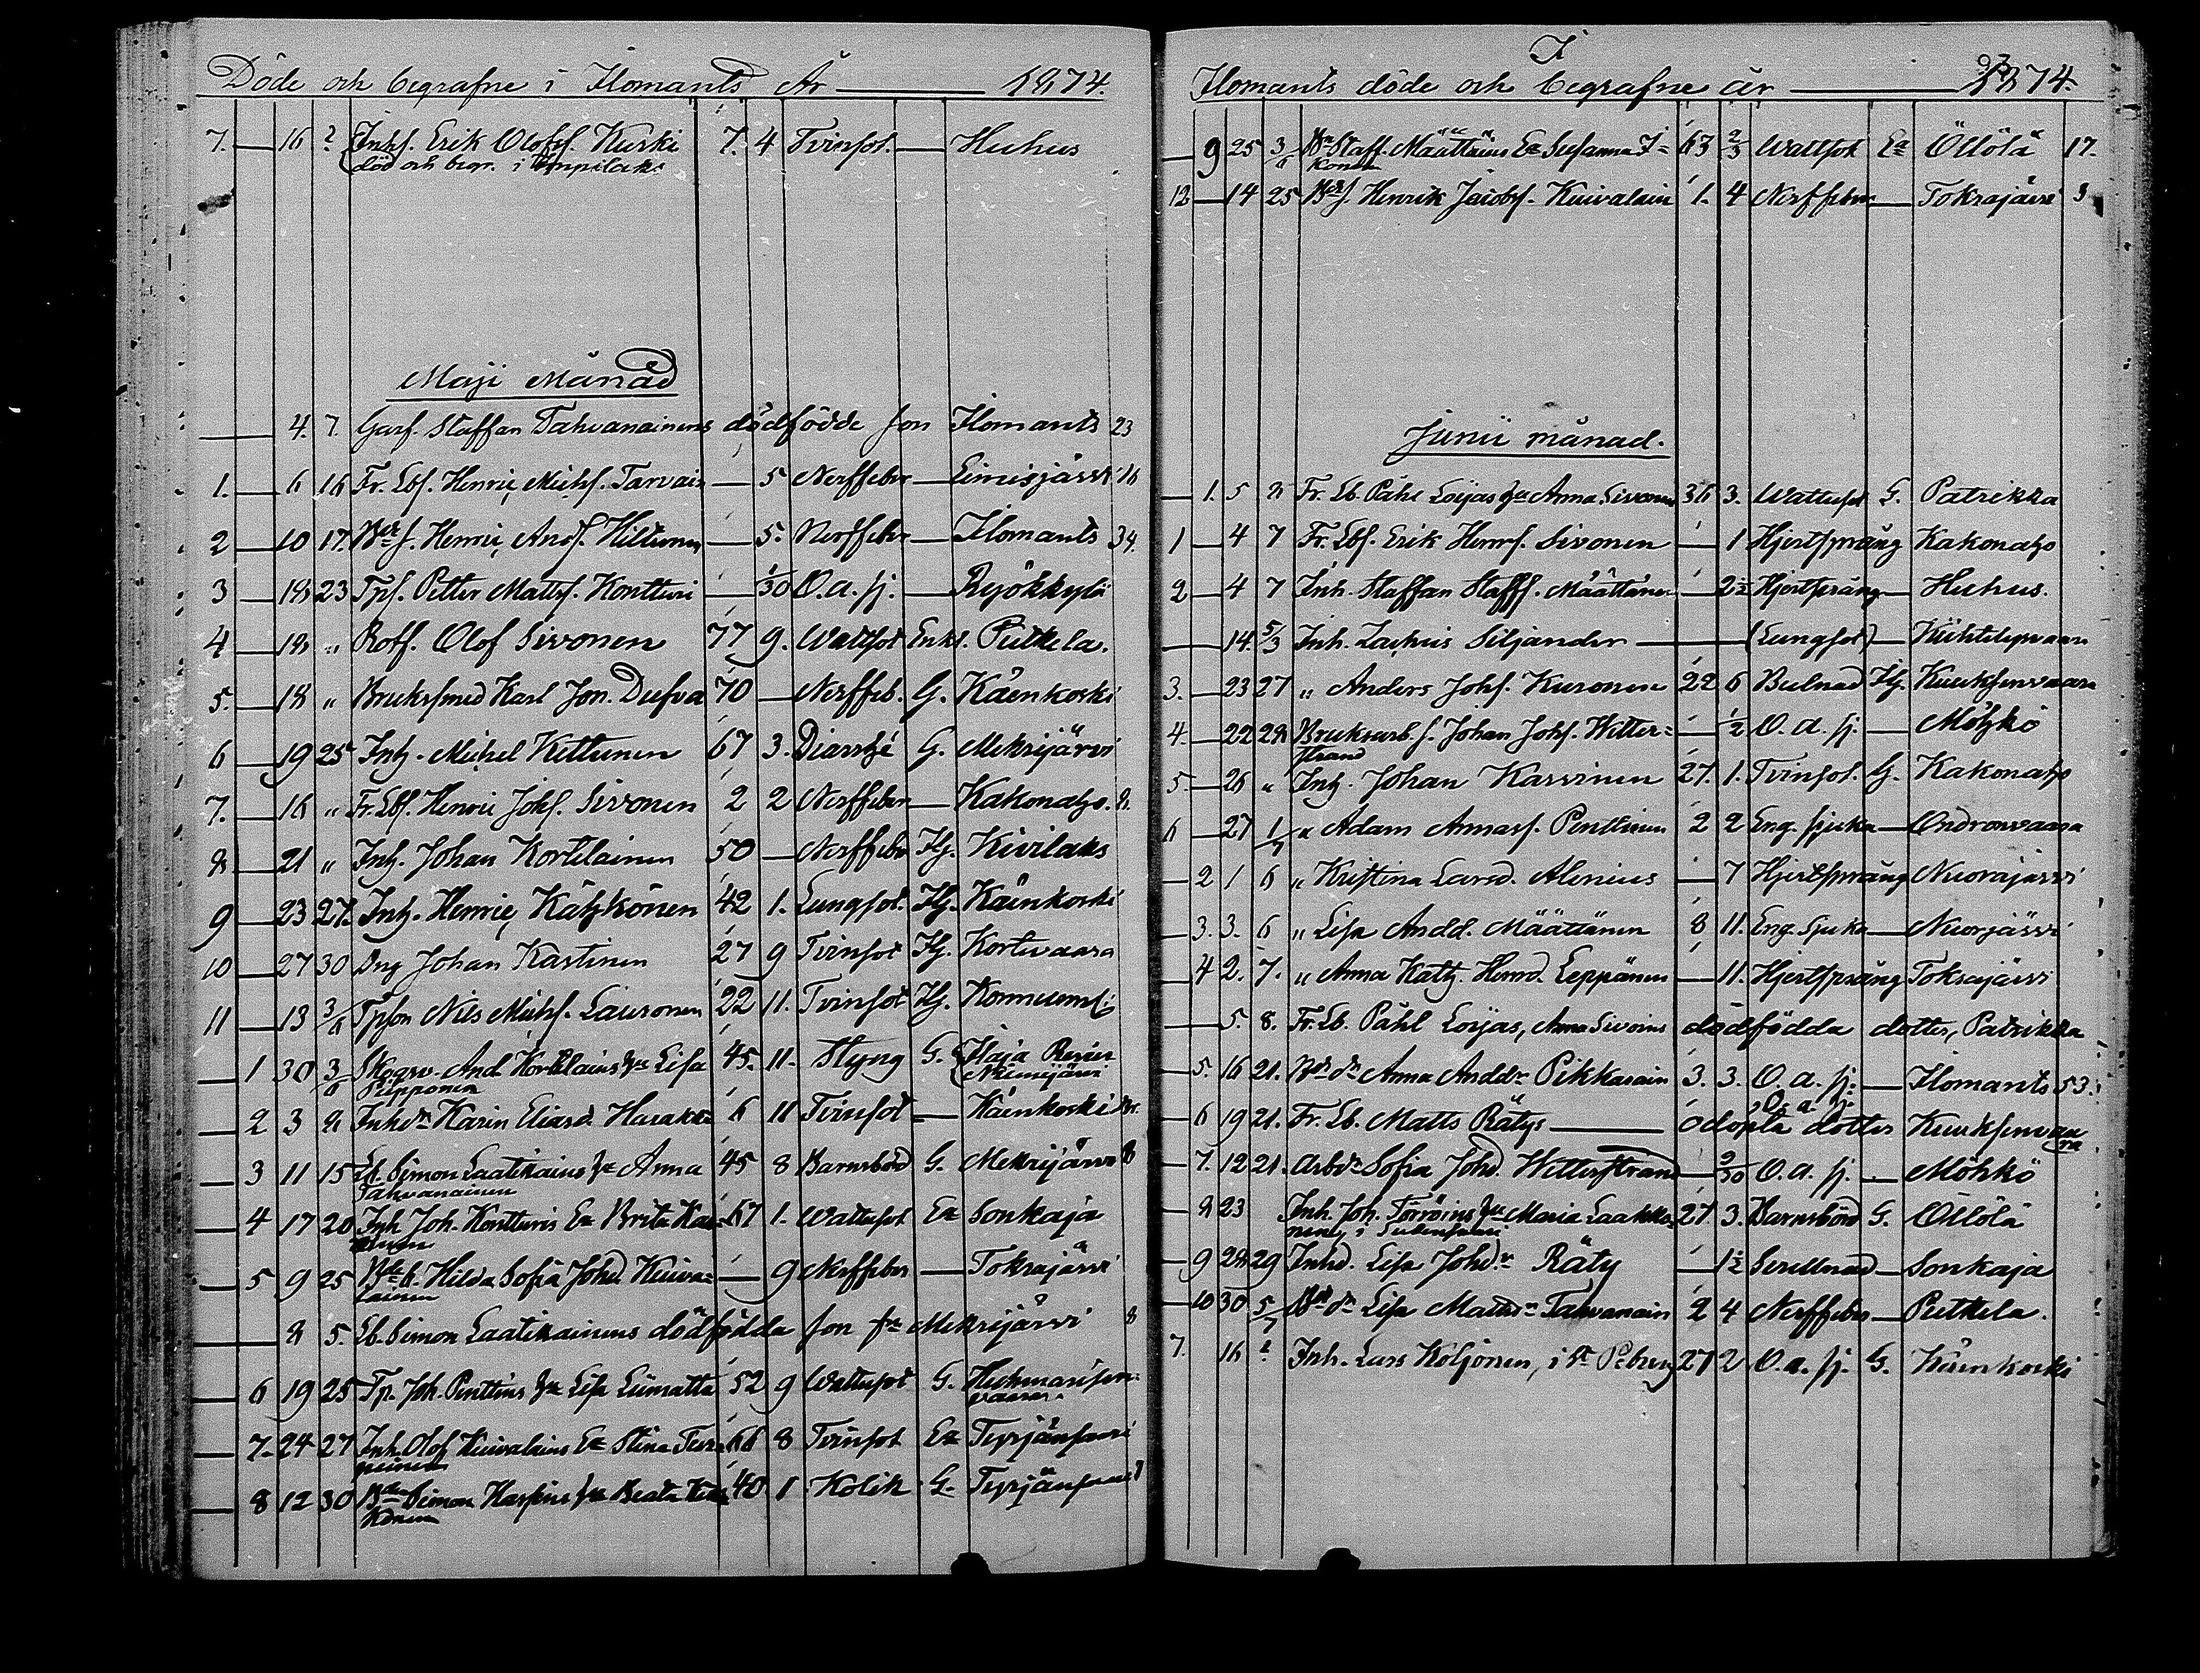 Döde och begrafne i Ilomants År 1874.
7. 16 ? Inhs. Erik Olofs. Kuski 7. 4 Tvinsot. Huhus
död och begr. i
Maji Månad
4. 7. Staffan Tahvanainens dödfödde son Ilomants 23
1. 6 16 Fr. Lbs. Henric Michs. Tarvain 5 Nerffeber 16
2 10 17. Henric Ands. Hiltunen 5. Nerffeber Ilomants 34.
3 18 23 Tps. Petter Matts. Kontturi 1/30 O.a.sj. Ryökkylä
4 18 " Rotf. Olof Sivonen 77 9. Wattsot Enkl. Putkela.
5. 18 " Bruksmed Karl Jon. Dufva 70 Nerffeb. G. Käenkoski
6 19 25 Inh. Michel Kettunen 67 3. Diarrhé G. Mekrijärvi
7. 16 " Fr. Lbs. Henric Johs. Sivonen 2 2 Nerffeber Kakonaho. 8.
8 21 " Inh. Johan Kortelainen 50 Nerffeber Hj. Kivilaks
9 23 27. Inh. Henric Kähkönen 42 1. Lungsot. Hj. Käenkoski
10 27 30 Dng Johan Kastinen 27 9 Tvinsot Hj. Kortevaara
11 13 3/6 Tpson Nils Michs. Lauronen 22 11. Tvinsot Hj.
1 30 3/6 Skogsv. And. Kortelains hu Lisa 45. 11. Styng G. Ilaja Revier
Piipponen
2 3 8 Inhdr Karin Eliasd. Harakka 6 11 Tvinsot Käenkoski
3 11 15 Lb. Simon Laatikains hu Anna 45 8 Barnsbörd G. Mekrijärvi 8
Tahvanainen
4 17 20 Inh. Joh. Kontturis Ea Brita 67 1. Wattusot Ea Sonkaja
5 9 25 Hilda Sofia Johd. Kuiva= 9 Nerffeber Tokrajärvi
lainen
8 5. Lb. Simon Laatikainens dödfödda son fr Mekrijärvi 8
6 19 25 Tp. Joh. Penttins hu Lisa Liimatta 52 9 Wattusot G.
vaara.
7. 24 27 Inh. Olof Kuivalains Ea Stina 66 8 Tvinsot Ea Tyrjänsaari
8 12 30 Simon hu Beata 40 1 Kolik G.
konen
I
Ilomants döde och begrafne år 1874.
9 25 3/6 Staff. Määttäins Ea Susanna I= 63 2/3 Wattsot Ea Öllölä 17.
konen
12 14 25 Henrik Jacobs. Kuivalain 1. 4 Nerffeber Tokrajärvi 3
Junii månad.
1. 5 8 Fr. Lb. Påhl Loijas hu Anna Sivonen 36 3. Wattusot G. Patrikka
1 4 7 Fr. Lbs. Erik Henrs. Sivonen 1 Hjertsprång Kakonaho
2 4 7 Inh. Staffan Staffs. Määttänen 2½ Hjertsprång Huhus.
14. 5/3 Inh. Zachris Siljander (Lungsot)
3. 23 27 " Anders Johs. Kuronen 22 6 Bulnad Hj. Kuuksenvaara
4. 22 28 Bruksarb. s. Johan Johs. Witter= 1/2 O.a.sj. Möhkö
strand
5. 26 " Inh. Johan Karvinen 27. 1. Tvinsot. G. Kakonaho
6 27 1/7 " Adam Annas. Penttinen 2 2 Eng. sjuka Ondronvaara
2 1 6 " Kristina Larsd. Alenius 7 Hjertsprång Nuorajärvi
3. 3. 6 " Lisa Andd. Määttänen 8 11. Eng. Sjuka Nuorjärvi
4 2. 7. " Anna Kath. Henrd. Leppänen 11. Hjertsprång Tokrajärvi
5. 8. Fr. Lb. Påhl Loijas, Anna Sivoins dödfödda dotter, Patrikka
5. 16 21. Anna Anddr Pikkarain 3. 3. O.a.sj. Ilomants 53.
6 19 21. Fr. Lb. Matts Rätys odöpta dotter O.a.sj. Kuuksenvaa
ra
7. 12 21. Arbdr Sofia Johd. Witterstrand 2/30 O.a.sj. Möhkö
8 23 Inh. Joh. Törröins hu Maria Laakko= 27 3. Barnsbörd G. Öllölä
9 28 29 Inhd. Lisa Johdr Räty 1½ Sonkaja
10 30 5/7 Lisa Mattsdr Tahvanain 2 4 Nerffeber Putkela.
7. 16 ? Inh. Lars Koljonen, i St Peterbg 27 2 O.a.sj. G. Käenkoski